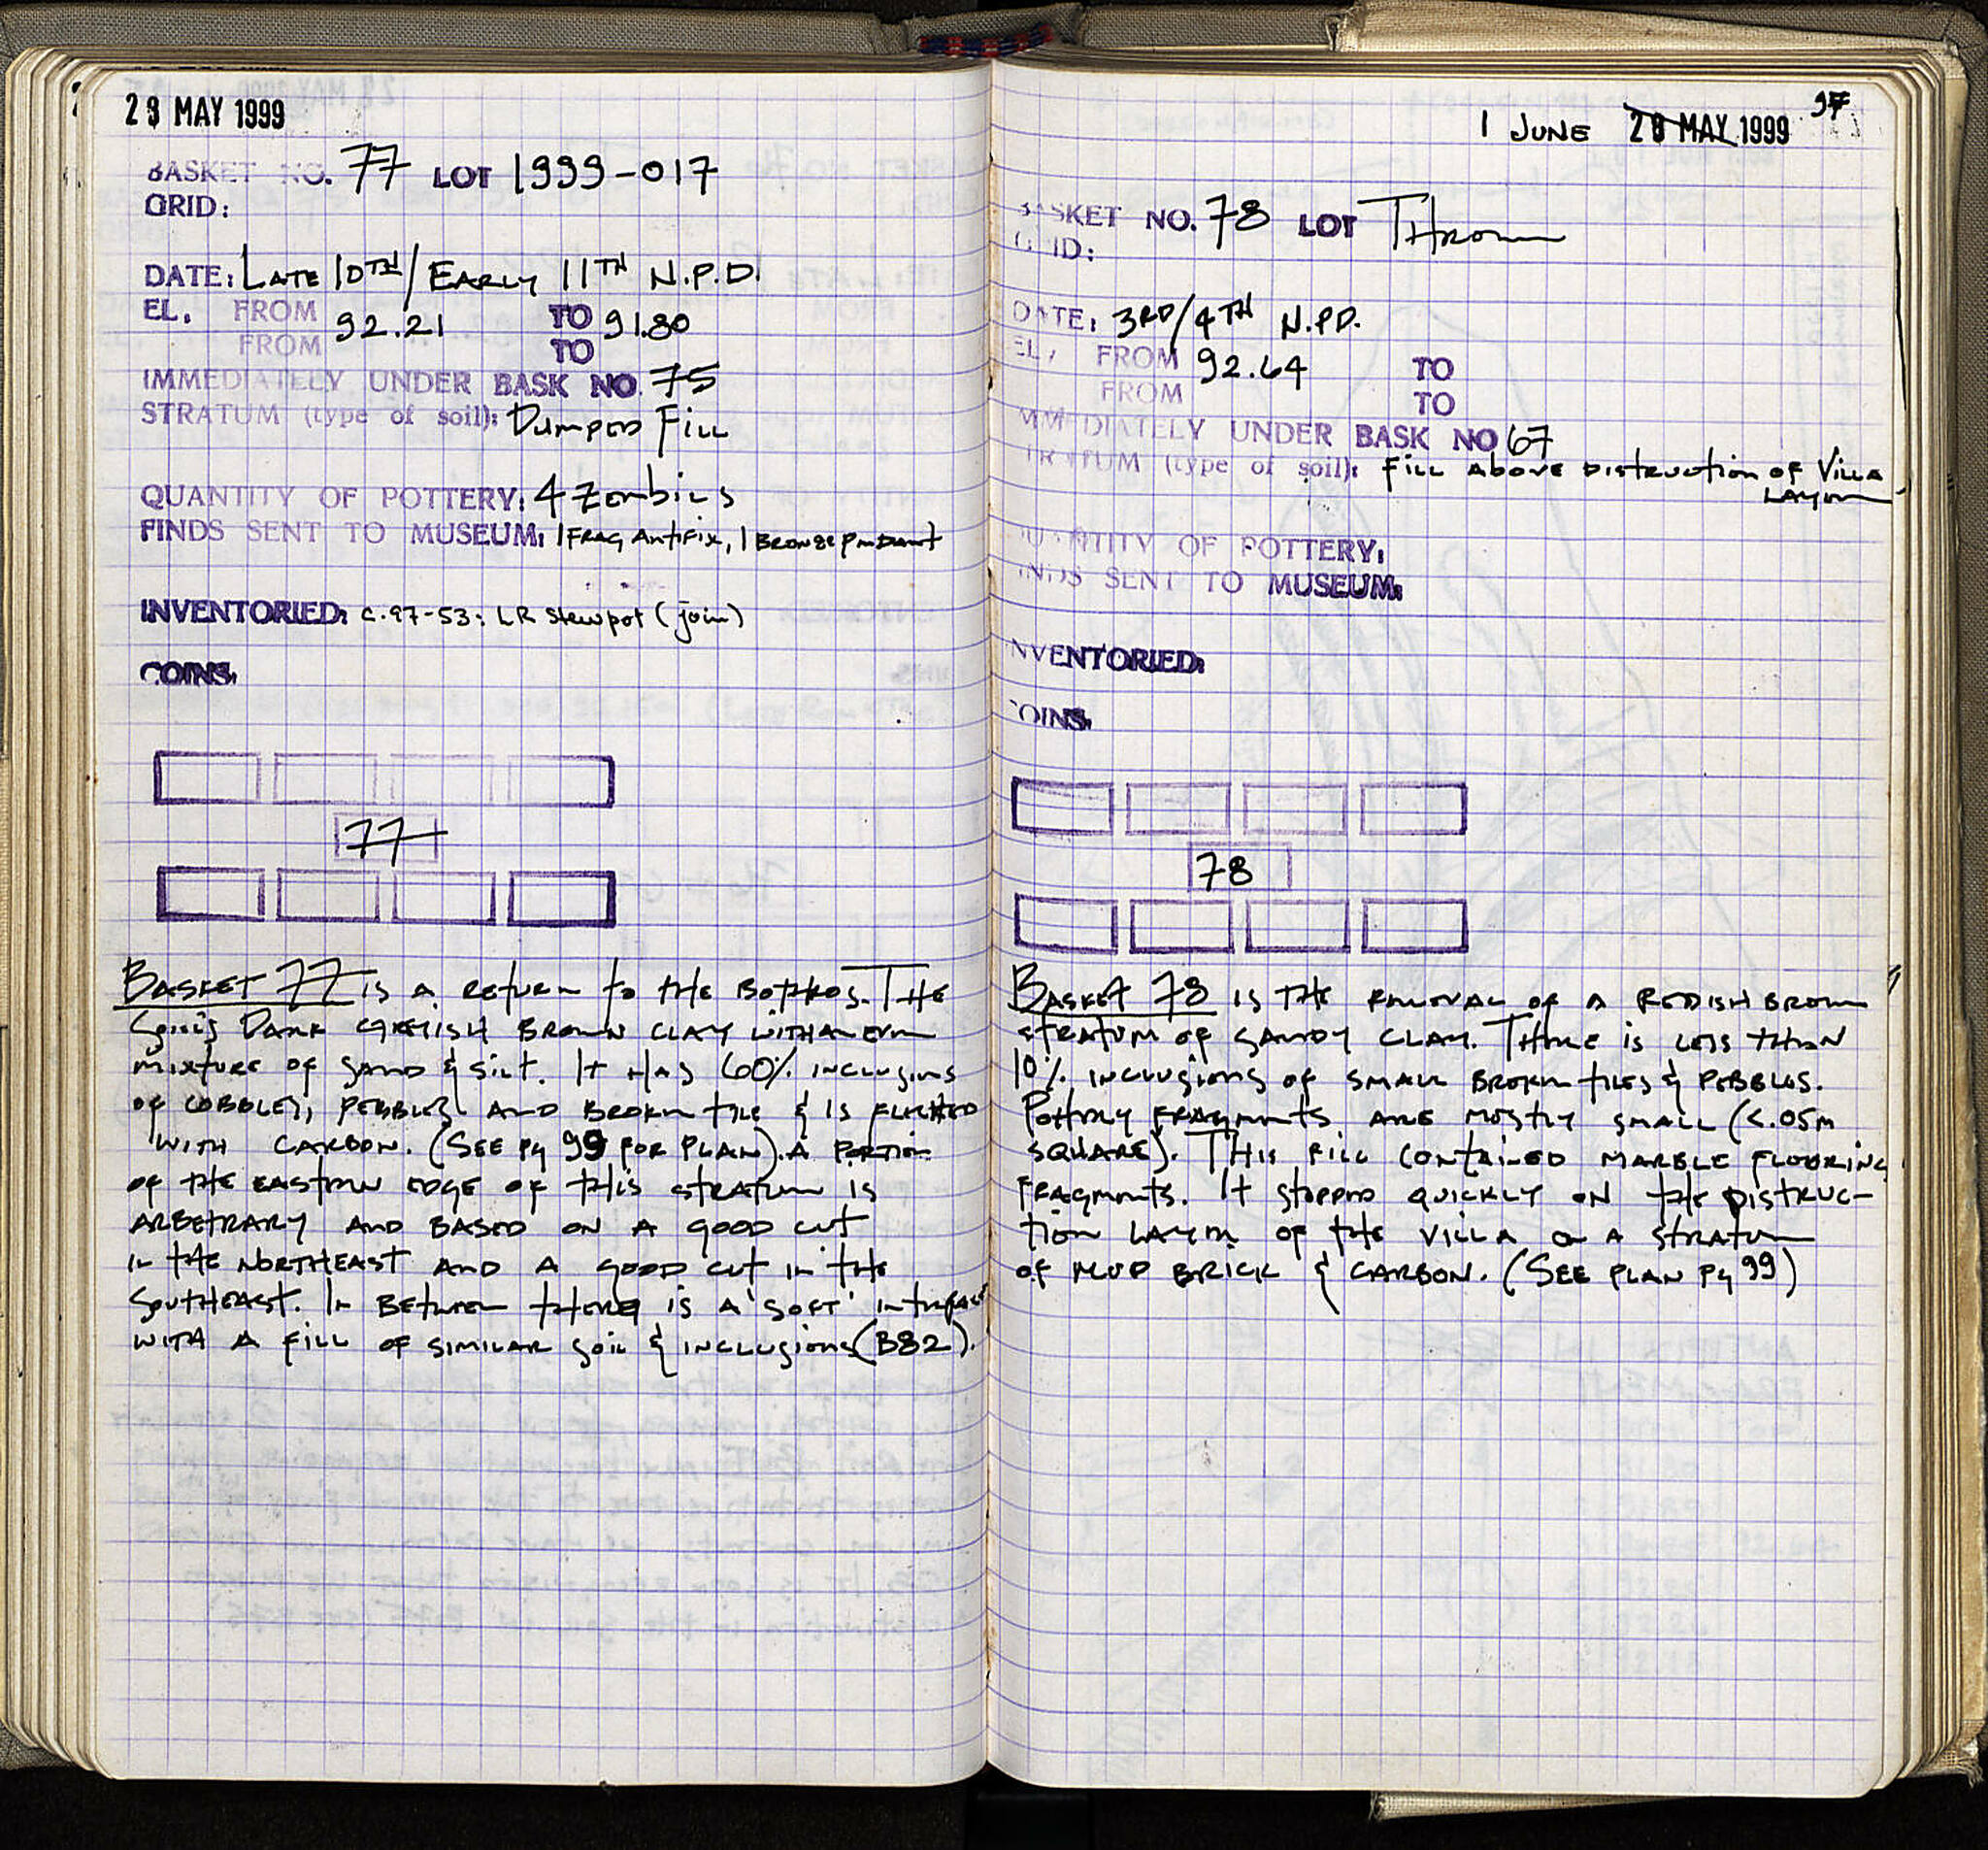 29 MAY 1999
BASKET NO. 77 LOT 1999-017
GRID:
DATE: LATE 10TH/EARLY 11TH N.P.D.
EL. FROM 92.21 TO 91.80
FROM TO
IMMEDIATELY UNDER BASK NO. 75
STRATUM (type of soil): DUMPED FILL
QUANTITY OF POTTERY: 4 Zembils
FINDS SENT TO MUSEUM: 1 FRAG ANTIFIX, 1 BRONZE PENDANT
INVENTORIED: C.97-53: LR stewpot (join)
COINS:
77
BASKET 77 IS A RETURN TO THE BOTHROS. THE
SOIL IS DARK GREYISH BROWN CLAY WITH AN EVEN
MIXTURE OF SAND & SILT. IT HAS 60% INCLUSIONS
OF COBBLES, PEBBLES AND BROKEN TILE & IS FLECKED
WITH CARBON. (SEE Pg 99 FOR PLAN). A PORTION
OF THE EASTERN EDGE OF THIS STRATUM IS
ARBETRARY AND BASED ON A GOOD CUT
IN THE NORTHEAST AND A GOOD CUT IN THE
SOUTHEAST. IN BETWEEN THERE IS A 'SOFT' INTERFACE
WITH A FILL OF SIMILAR SOIL & INCLUSIONS (B82).
97
1 JUNE 28 MAY 1999
BASKET NO. 78 LOT THROWN
GRID:
DATE: 3RD/4TH N.P.D.
EL. FROM 92.64 TO
FROM TO
IMMEDIATELY UNDER BASK NO 67
STRATUM (type of soil): FILL ABOVE DISTRUCTION OF VILLA
LAYER
QUANTITY OF POTTERY:
FINDS SENT TO MUSEUM:
INVENTORIED:
COINS:
78
BASKET 78 IS THE REMOVAL OF A REDISH BROWN
STRATUM OF SANDY CLAY. THERE IS LESS THAN
10% INCLUSIONS OF SMALL BROKEN TILES & PEBBLES.
POTTERY FRAGMENTS ARE MOSTLY SMALL (<.05m
SQUARE). THIS FILL CONTAINED MARBLE FLOORING
FRAGMENTS. IT STOPPED QUICKLY ON THE DISTRUC-
TION LAYER OF THE VILLA ON A STRATUM
OF MUD BRICK & CARBON. (SEE PLAN Pg 99)